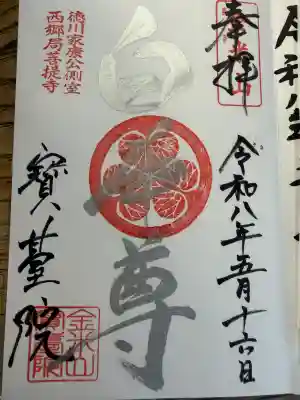 奉拝
令和八年五月十六日
白本尊
徳川家康公側室
西郷局菩提寺
寳臺院
金米山
寳臺院